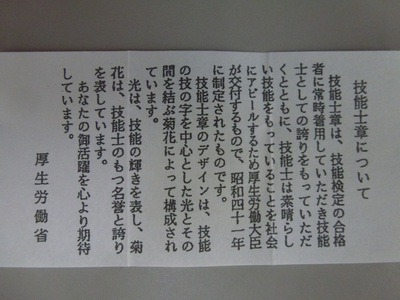 技能士章について
技能士章は、技能検定の合格
者に常時着用していただき技能
士としての誇りをもっていただ
くとともに、技能士は素晴らし
い技能をもっていることを社会
にアピールするため厚生労働大臣
が交付するもので、昭和四十一年
に制定されたものです。
技能士章のデザインは、技能
の技の字を中心とした光とその
間を結ぶ菊花によって構成され
ています。
光は、技能の輝きを表し、菊
花は、技能士のもつ名誉と誇り
を表しています。
あなたの御活躍を心より期待
しています。
厚生労働省